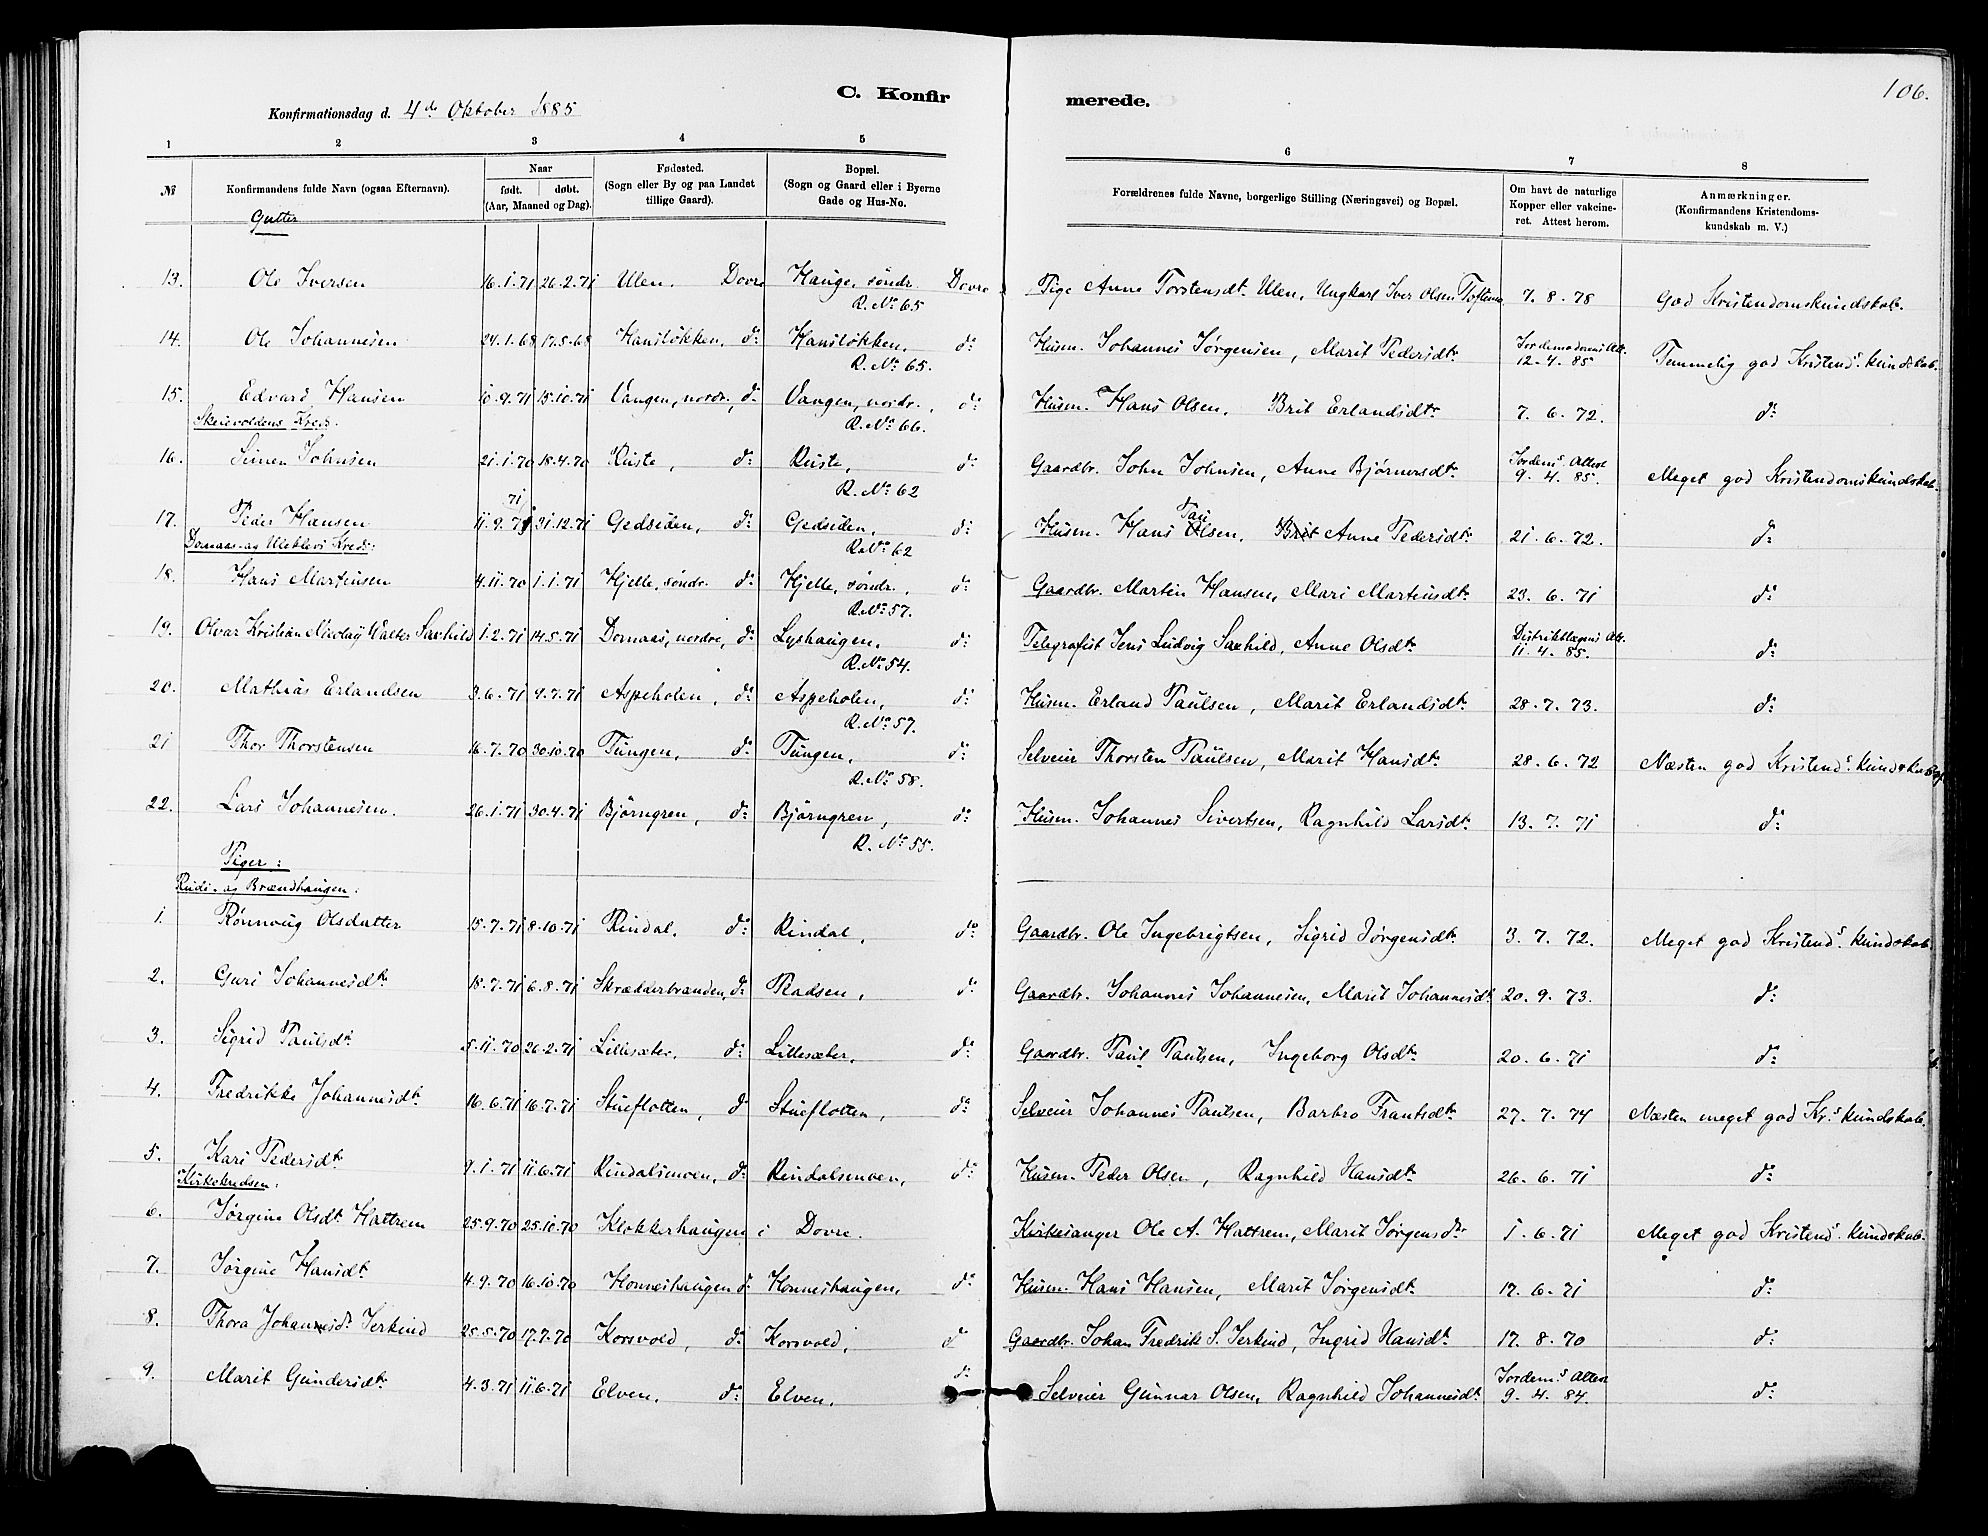 106.
C. Konfirmerede.
Konfirmationsdag d. 4de Oktober 1885
1 2 3 4 5 6 7 8
№ Konfirmandens fulde Navn (ogsaa Efternavn). Naar født. døbt. (Aar, Maaned og Dag). Fødested. (Sogn eller By og paa Landet tillige Gaard). Bopæl. (Sogn og Gaard eller i Byerne Gade og Hus-No. Forældrenes fulde Navne, borgerlige Stilling (Næringsvei) og Bopæl. Om havt de naturlige Kopper eller vakcineret. Attest herom. Anmærkninger. (Konfirmandens Kristendomskundskab m. V.)
Gutter
13. Ole Iversen 16.1.71 26.2.71 Ulen. Dovre Hauge, søndr. Dovre R. No 65 Pige Anne Torstensdt. Ulen, Ungkarl Iver Olsen Toftemo 7.8.78 God Kristendomskundskab.
14. Ole Johannesen 24.1.68 17.5.68 Hansløkken, do: Hansløkken, do: R. No 65. Husm. Johannes Jørgensen, Marit Pedersdtr. Jordemoderens Att. 12-4.85 Temmelig god Kristends. kundskab.
15. Edvard Hansen 10.9.71 15.10.71 Vangen, nordr., do: Vangen, nordr., do: R. No 66. Husm. Hans Olsen, Brit Erlandsdtr. 7.6.72. do:
Skeievoldens Kreds.
16. Simen Johnsen 21.1.70 18.4.70 Ruste, do: Ruste, do: R. No 62 Gaardbr. John Johnsen, Anne Bjørnersdtr. Jordems. Attest 9.4.85. Meget god Kristendomskundskab.
17. Peder Hansen 11.9.71 31.12.71 Gedsiden, do: Gedsiden, do: R. No 62 Husm. Hans Olsen, Brit Anne Pedersdtr. 21.6.72. do:
Domaas- og Uleklevs Kreds:
18. Hans Martinsen 4.11.70 1.1.71 Hjelle, søndr. do: Hjelle, søndr., do: R. No 57. Gaardbr. Martin Hansen, Mari Martinsdtr. 23.6.71 do:
19. Olvar Kristian Nicolay Walter Saxhild 1.2.71 14.5.71 Domaas, nordre, do: Lyshaugen, do: R. No 54. Telegrafist Jens Ludvig Saxhild, Anne Olsdtr. Distriktslægens Att. 11.4.85. do:
20. Mathias Erlandsen 3.6.71 9.7.71 Aspeholen, do: Aspeholen, do: R. No 57. Husm. Erland Paulsen, Marit Erlandsdtr. 28.7.73. do:
21 Thor Thorstensen 16.7.70 30.10.70 Tungen, do: Tungen, do: R. No 58. Selveier Thorsten Paulsen, Marit Hansdtr. 28.6.72 Næsten god Kristends. kundskab.
22. Lars Johannesen. 26.1.71 30.4.71 Bjørngren, do: Bjørngren, do: R. No 55. Husm. Johannes Sivertsen, Ragnhild Larsdtr. 13.7.71 do:
Piger:
Rinds- og Brændhaugen:
1. Rønnoug Olsdatter 15.7.71 8.10.71 Rindal. do: Rindal, do: Gaardbr. Ole Ingebrigtsen, Sigrid Jørgensdtr. 3.7.72. Meget god Kristends. kundskab.
2. Guri Johannesdtr. 18.7.71 6.8.71 Skrædderbranden, do: Radsen, do: Gaardbr. Johannes Johannesen, Marit Johannesdtr. 20.9.73. do:
3. Sigrid Paulsdtr. 5.11.70 26.2.71 Lillesæter, do: Lillesæter, do: Gaardbr. Paul Paulsen, Ingeborg Olsdtr. 20.6.71 do:
4. Fredrikke Johannesdtr. 16.6.71 16.7.71 Stueflotten, do Stueflotten, do: Selveier Johannes Paulsen, Barbro Frantsdtr. 27.7.74 Næsten meget god Krs. kundskab.
5. Kari Pedersdtr. 9.1.71 11.6.71 Rindalsmoen, do: Rindalsmoen, do: Husm. Peder Olsen, Ragnhild Hansdtr. 26.6.71 do:
Kirkekredsen:
6. Jørgine Olsdt. Hattrem 25.9.70 25.10.70 Klokkerhaugen i Dovre. Kirkesanger Ole A. Hattrem, Marit Jørgensdtr 1.6.71 Meget god Kristends. kundskab.
7. Jørgine Hansdtr. 4.9.70 16.10.70 Honneshaugen do: Honneshaugen, do: Husm. Hans Hansen, Marit Jørgensdtr. 17.6.71 do:
8. Thora Johannesdt. Jerkind 25.5.70 17.7.70 Korsvold, do: Korsvold, do Gaardbr. Johan Fredrik S. Jerkind, Ingrid Hansdtr. 17.8.70 do:
9. Marit Gundersdtr. 4.3.71 11.6.71 Elven, do: Elven, do: Selveier Gunnar Olsen, Ragnhild Johannesdtr. Jordems. Attest 9.4.84. do: